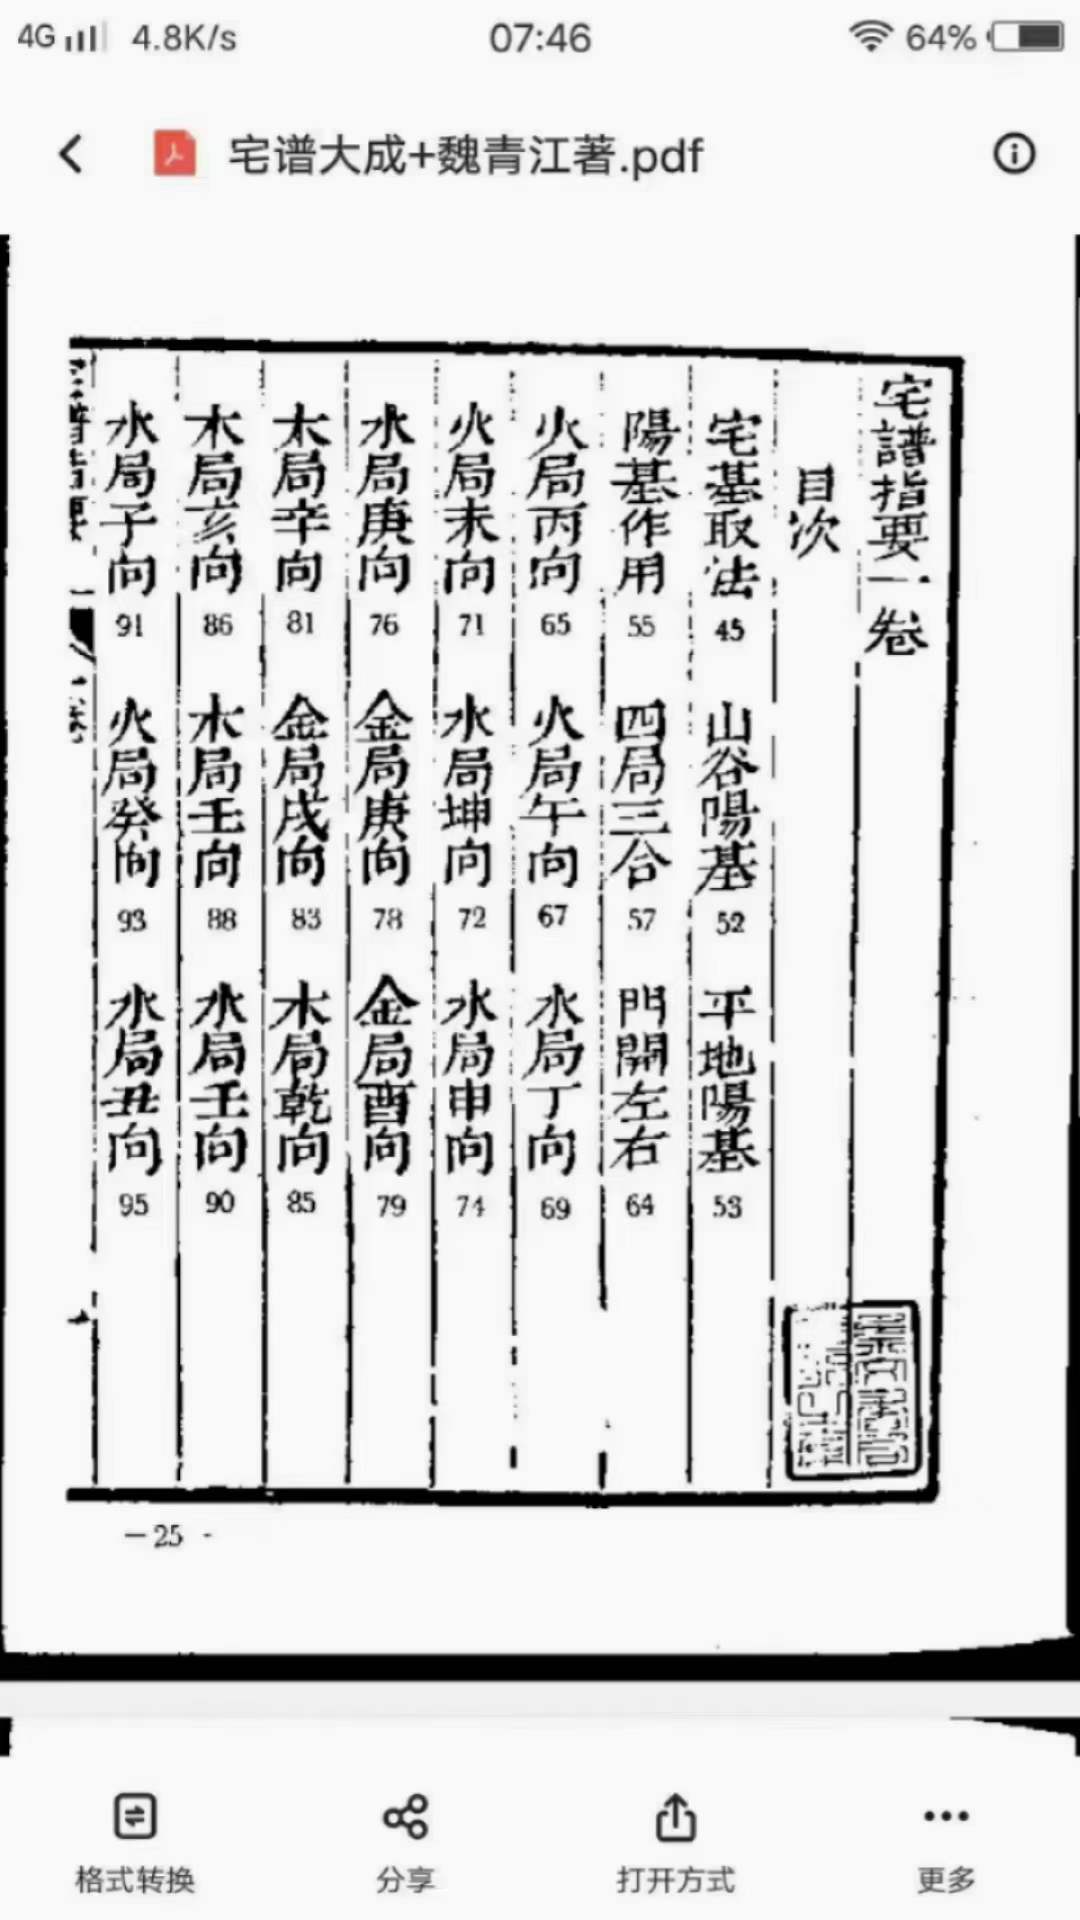 4G 4.8K/s 07:46 64%
宅谱大成+魏青江著.pdf
宅譜指要一卷
目次
宅基取法 45 山谷陽基 52 平地陽基 53
陽基作用 55 四局三合 57 門開左右 64
火局丙向 65 火局午向 67 水局丁向 69
火局未向 71 水局坤向 72 水局申向 74
水局庚向 76 金局庚向 78 金局酉向 79
木局辛向 81 金局戌向 83 木局乾向 85
木局亥向 86 木局壬向 88 水局壬向 90
水局子向 91 火局癸向 93 水局丑向 95
—25 -
格式转换 分享 打开方式 更多